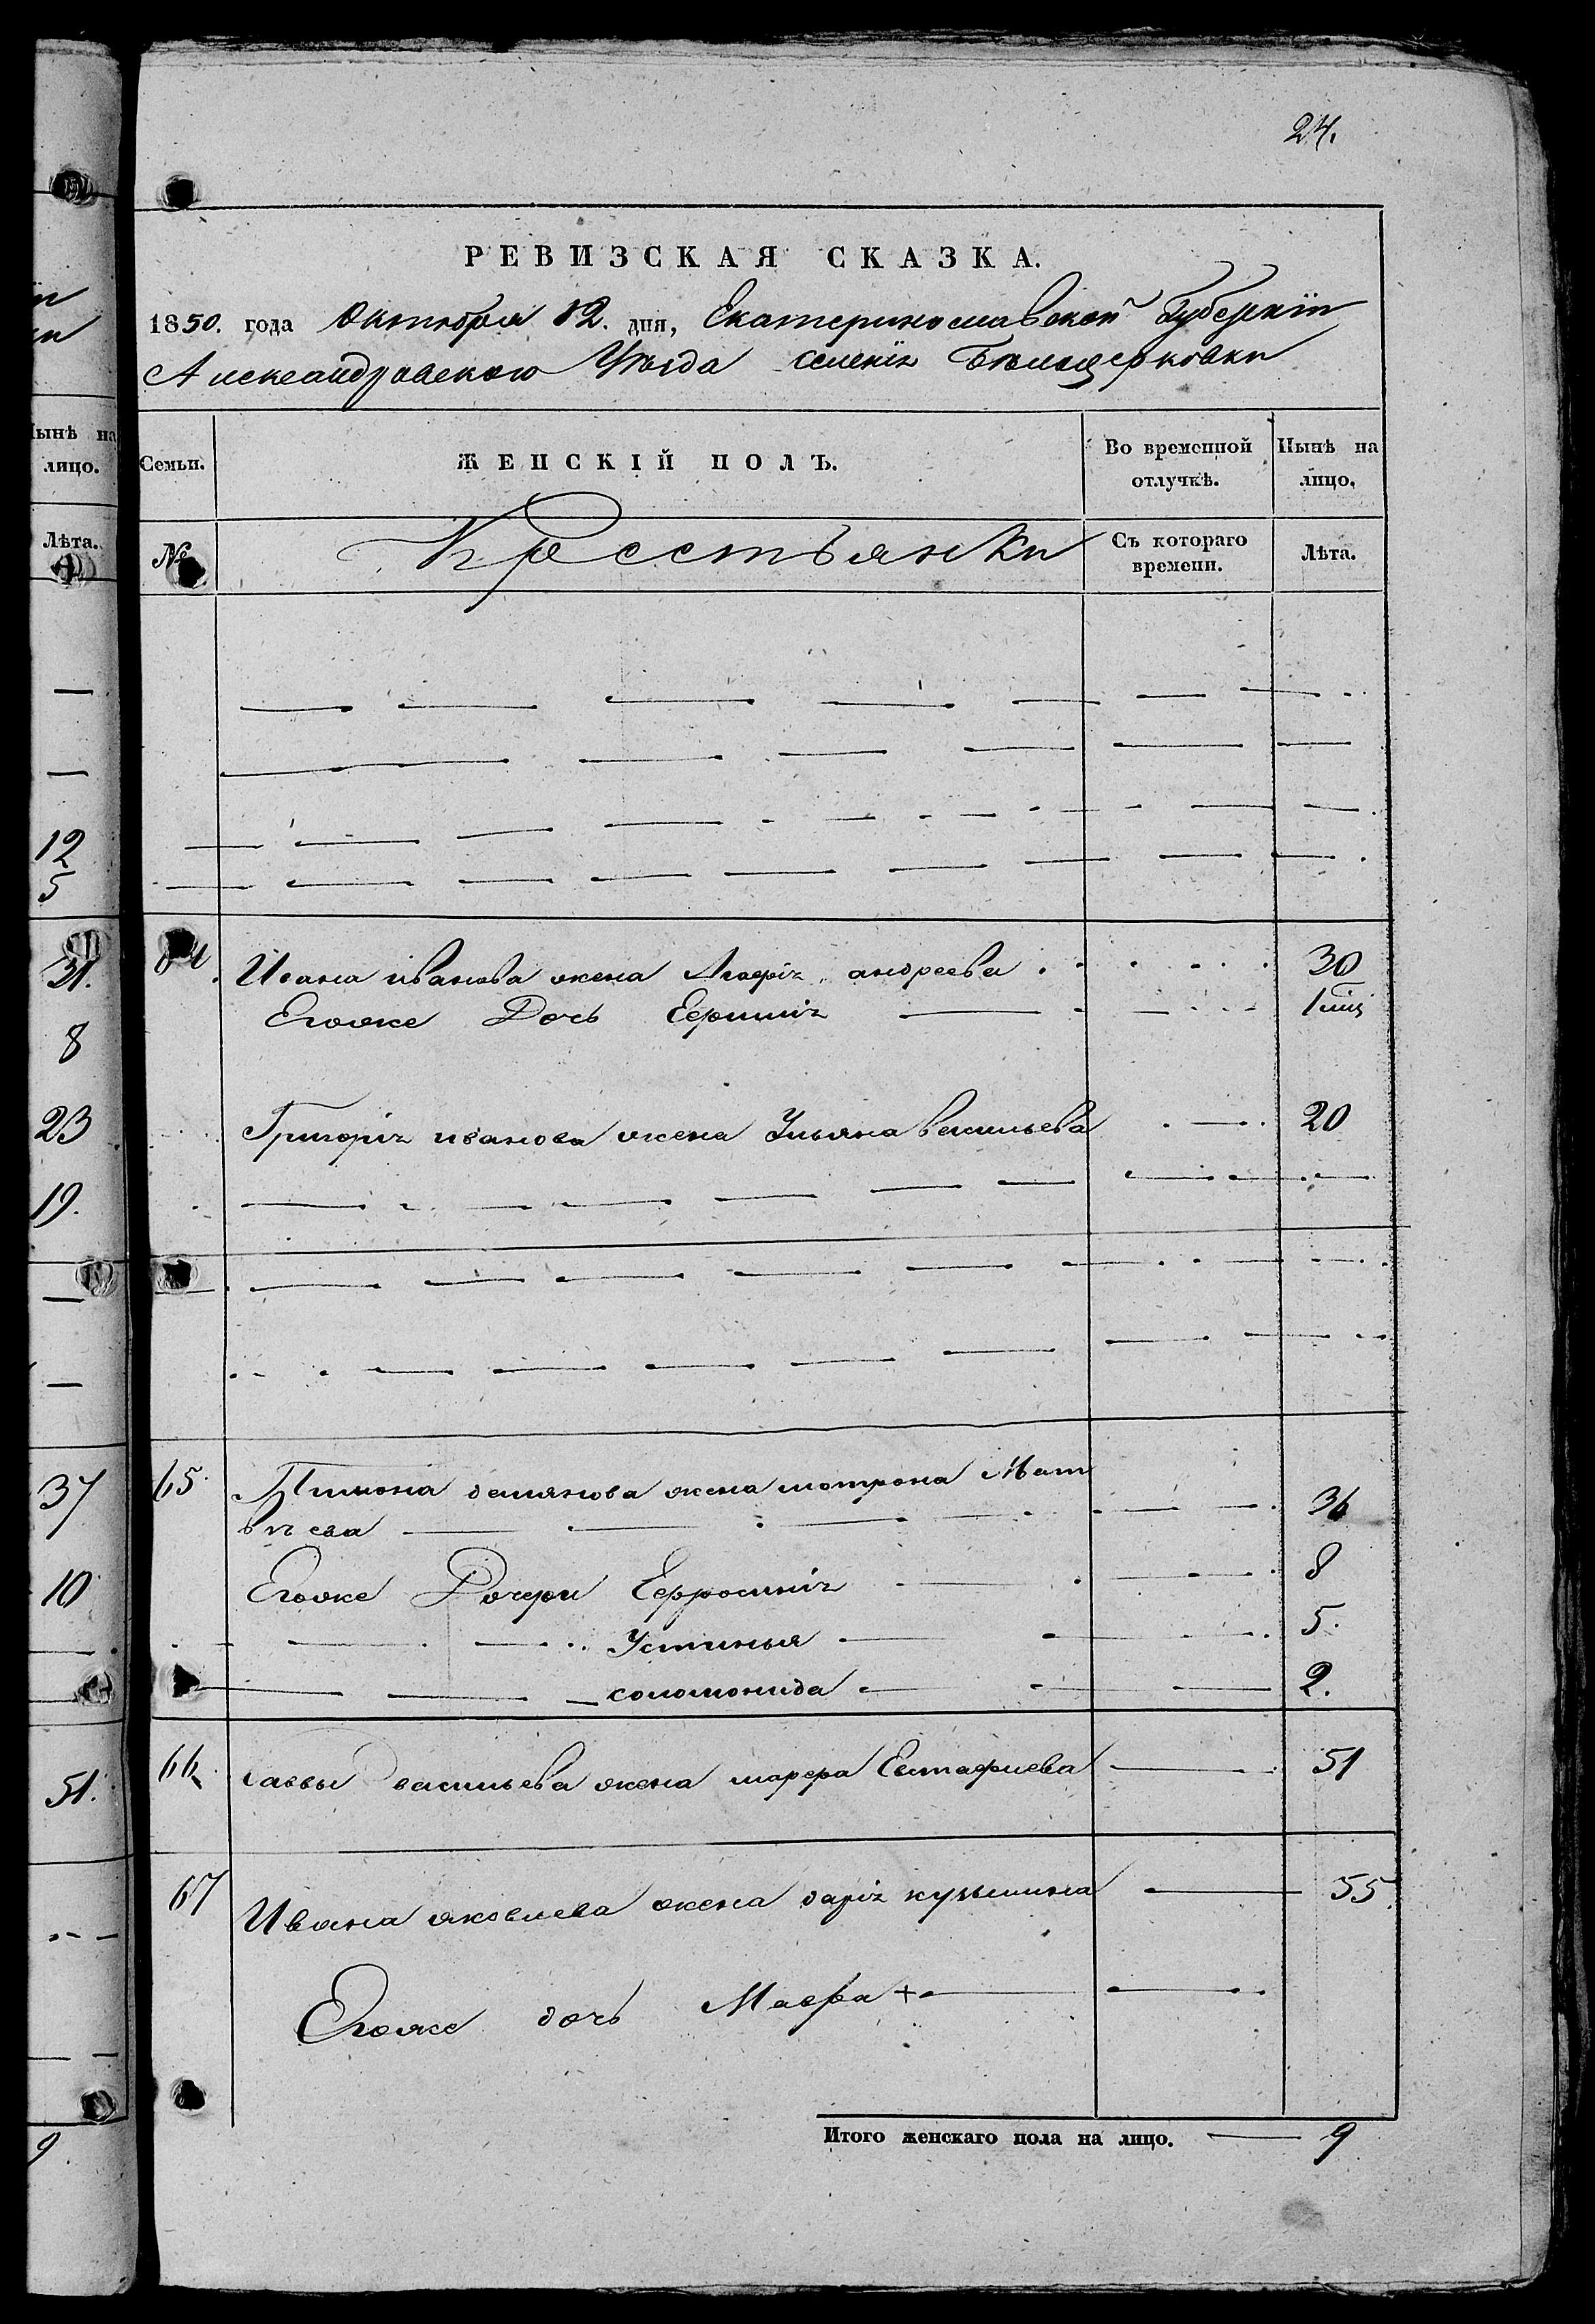 24.
РЕВИЗСКАЯ СКАЗКА.
1850. года Октября 12. дня, Екатеринославской Губернiи
Александровскаго Уѣзда селенiя Бѣлоцерковки
Нынѣ на лицо.
Семьи.
ЖЕНСКIЙ ПОЛЪ.
Во временной отлучкѣ.
Нынѣ на лицо.
Лѣта.
№
Крестьянки
Съ котораго времени.
Лѣта.
12
5
31.
64. Ивана иванова жена андреева 30
8
Егоже Дочь 1 мѣц
23
Григорiя иванова жена Ульяна васильева 20
19.
37
65. Пимона демянова жена мотрона Мат
вѣева 36
10
Егоже Дочери Ефросинiя 8
Устинья 5.
соломонида 2.
66. саввы васильева жена марфа Евстафиева 51
51.
67 Ивана яковлева жена дарiя кузмина 55.
Егоже дочь Мавра +
Итого женскаго пола на лицо. 9
9